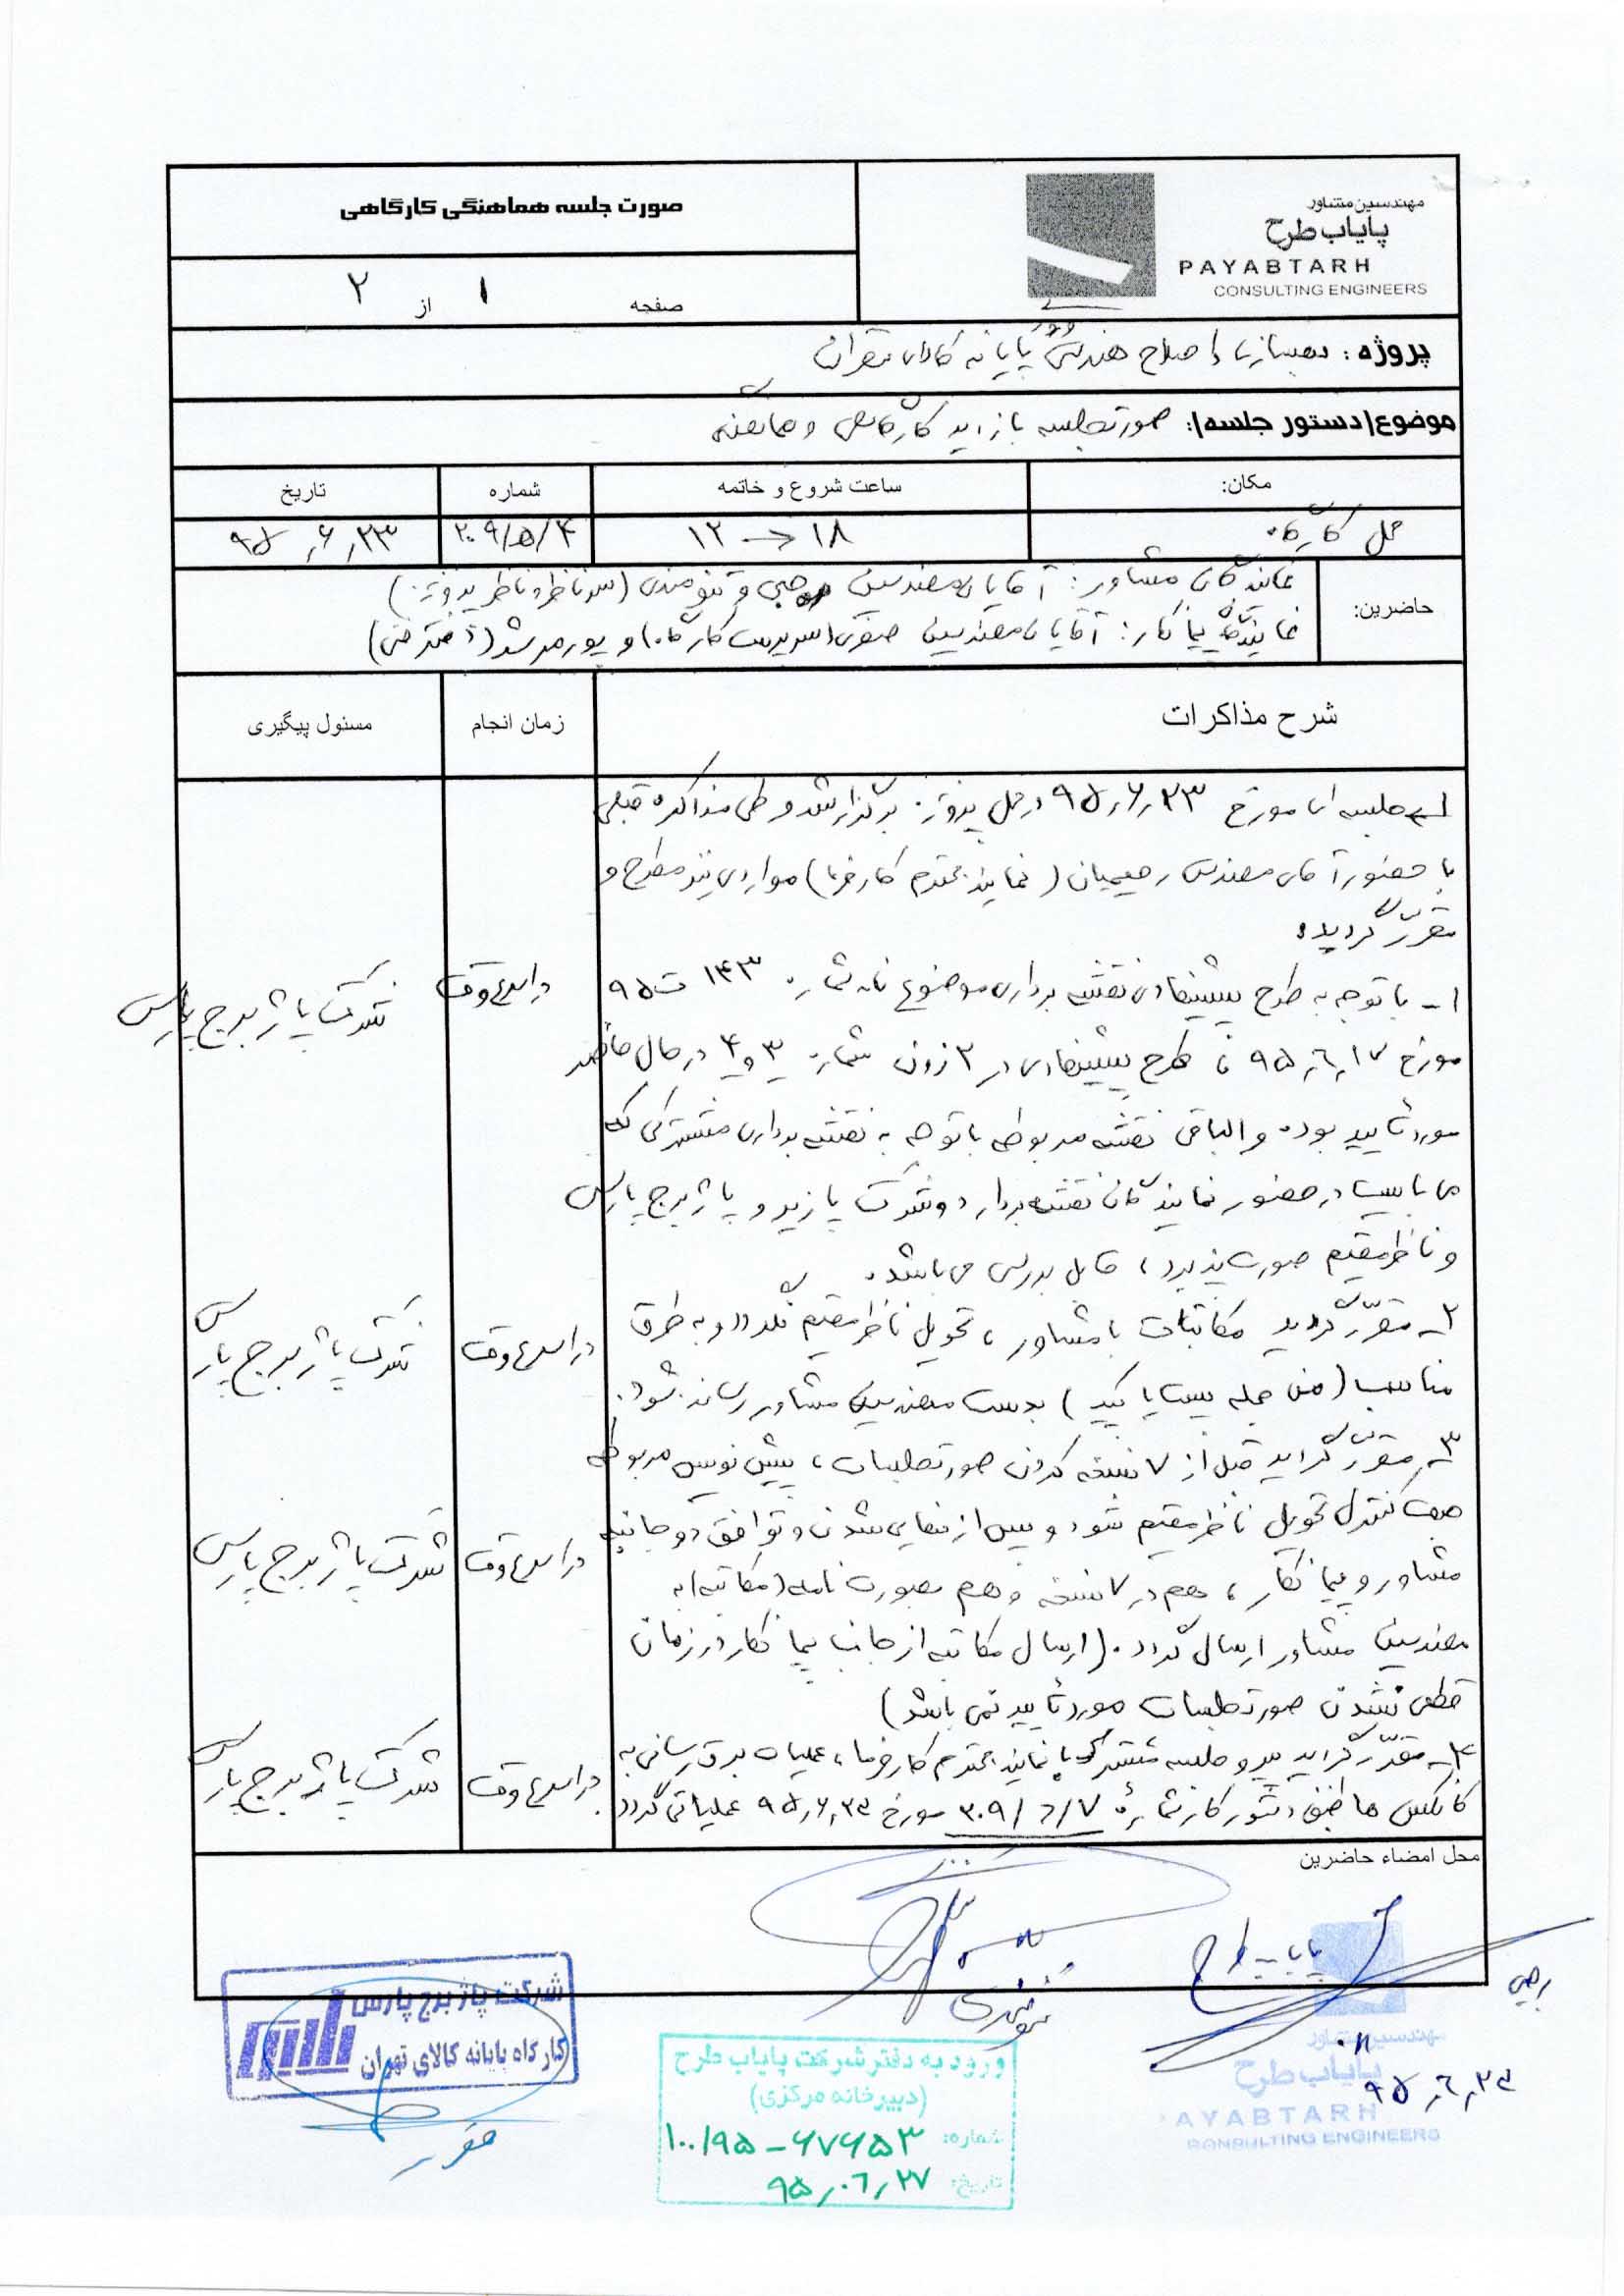 صورت جلسه هماهنگی کارگاهی
مهندسین مشاور
پایاب طرح
PAYABTARH
CONSULTING ENGINEERS
صفحه ۱ از ۲
پروژه : بهسازی و اصلاح هندسی پایانه کالای تهران
موضوع(دستور جلسه): صورتجلسه بازدید کارگاهی و هماهنگی
مکان: ساعت شروع و خاتمه شماره تاریخ
محل کارگاه ۱۲ → ۱۸ ۳۰۹/۵/۴ ۹۵,۶,۲۳
حاضرین:
نمایندگان مشاور: آقایان مهندسین رجبی و تنومندی (سرناظر و ناظر پروژه)
نماینده پیمانکار: آقایان مهندسین صفری (سرپرست کارگاه) و پورمرشد (دفتر فنی)
شرح مذاکرات زمان انجام مسئول پیگیری
جلسه ای مورخ ۹۵,۶,۲۳ در محل پروژه برگزار شد و طی مذاکره قبلی
با حضور آقای مهندس رحیمیان (نماینده محترم کارفرما) مواردی نیز مطرح و
مقرر گردید:
۱- با توجه به طرح پیشنهادی نقشه برداری موضوع نامه شماره ۱۴۳ ت ۹۵ در اسرع وقت شرکت پاژ برج پارس
مورخ ۹۵,۶,۱۷ طرح پیشنهادی در ۲ زون شماره ۳ و ۴ در حال حاضر
مورد تایید بوده و الباقی نقشه مربوطه با توجه به نقشه برداری مشترکی که
می بایست در حضور نمایندگان نقشه بردار دو شرکت پازیر و پاژ برج پارس
و ناظر مقیم صورت پذیرد، قابل بررسی می باشد.
۲- مقرر گردید مکاتبات با مشاور، تحویل ناظر مقیم نگردد و به طرق در اسرع وقت شرکت پاژ برج پارس
مناسب (من جمله پست یا پیک) بدست مهندسین مشاور رسانده شود.
۳- مقرر گردید قبل از ۷ نسخه کردن صورتجلسات، پیش نویس مربوطه
جهت کنترل تحویل ناظر مقیم شود و پس از نهایی شدن و توافق دو جانبه در اسرع وقت شرکت پاژ برج پارس
مشاور و پیمانکار، هم در ۷ نسخه و هم بصورت نامه (مکاتبه) به
مهندسین مشاور ارسال گردد. (ارسال مکاتبه از جانب پیمانکار در زمان
قطعی نشدن صورتجلسات مورد تایید نمی باشد)
۴- مقرر گردید پیرو جلسه مشترک با نماینده محترم کارفرما، عملیات برق رسانی به در اسرع وقت شرکت پاژ برج پارس
کانکس ها طبق دستور کار شماره ۳۰۹/۶/۷ مورخ ۹۵,۶,۲۳ عملیاتی گردد
محل امضاء حاضرین
پایاب طرح
رجبی
تنومندی
۹۵,۶,۲۳
مهندسین مشاور
پایاب طرح
AYABTARH
CONSULTING ENGINEERS
شرکت پاژ برج پارس
کارگاه پایانه کالای تهران
ورود به دفتر شرکت پایاب طرح
(دبیرخانه مرکزی)
شماره: ۱۰۰/۹۵-۶۷۶۵۳
تاریخ: ۹۵,۰۶,۲۷